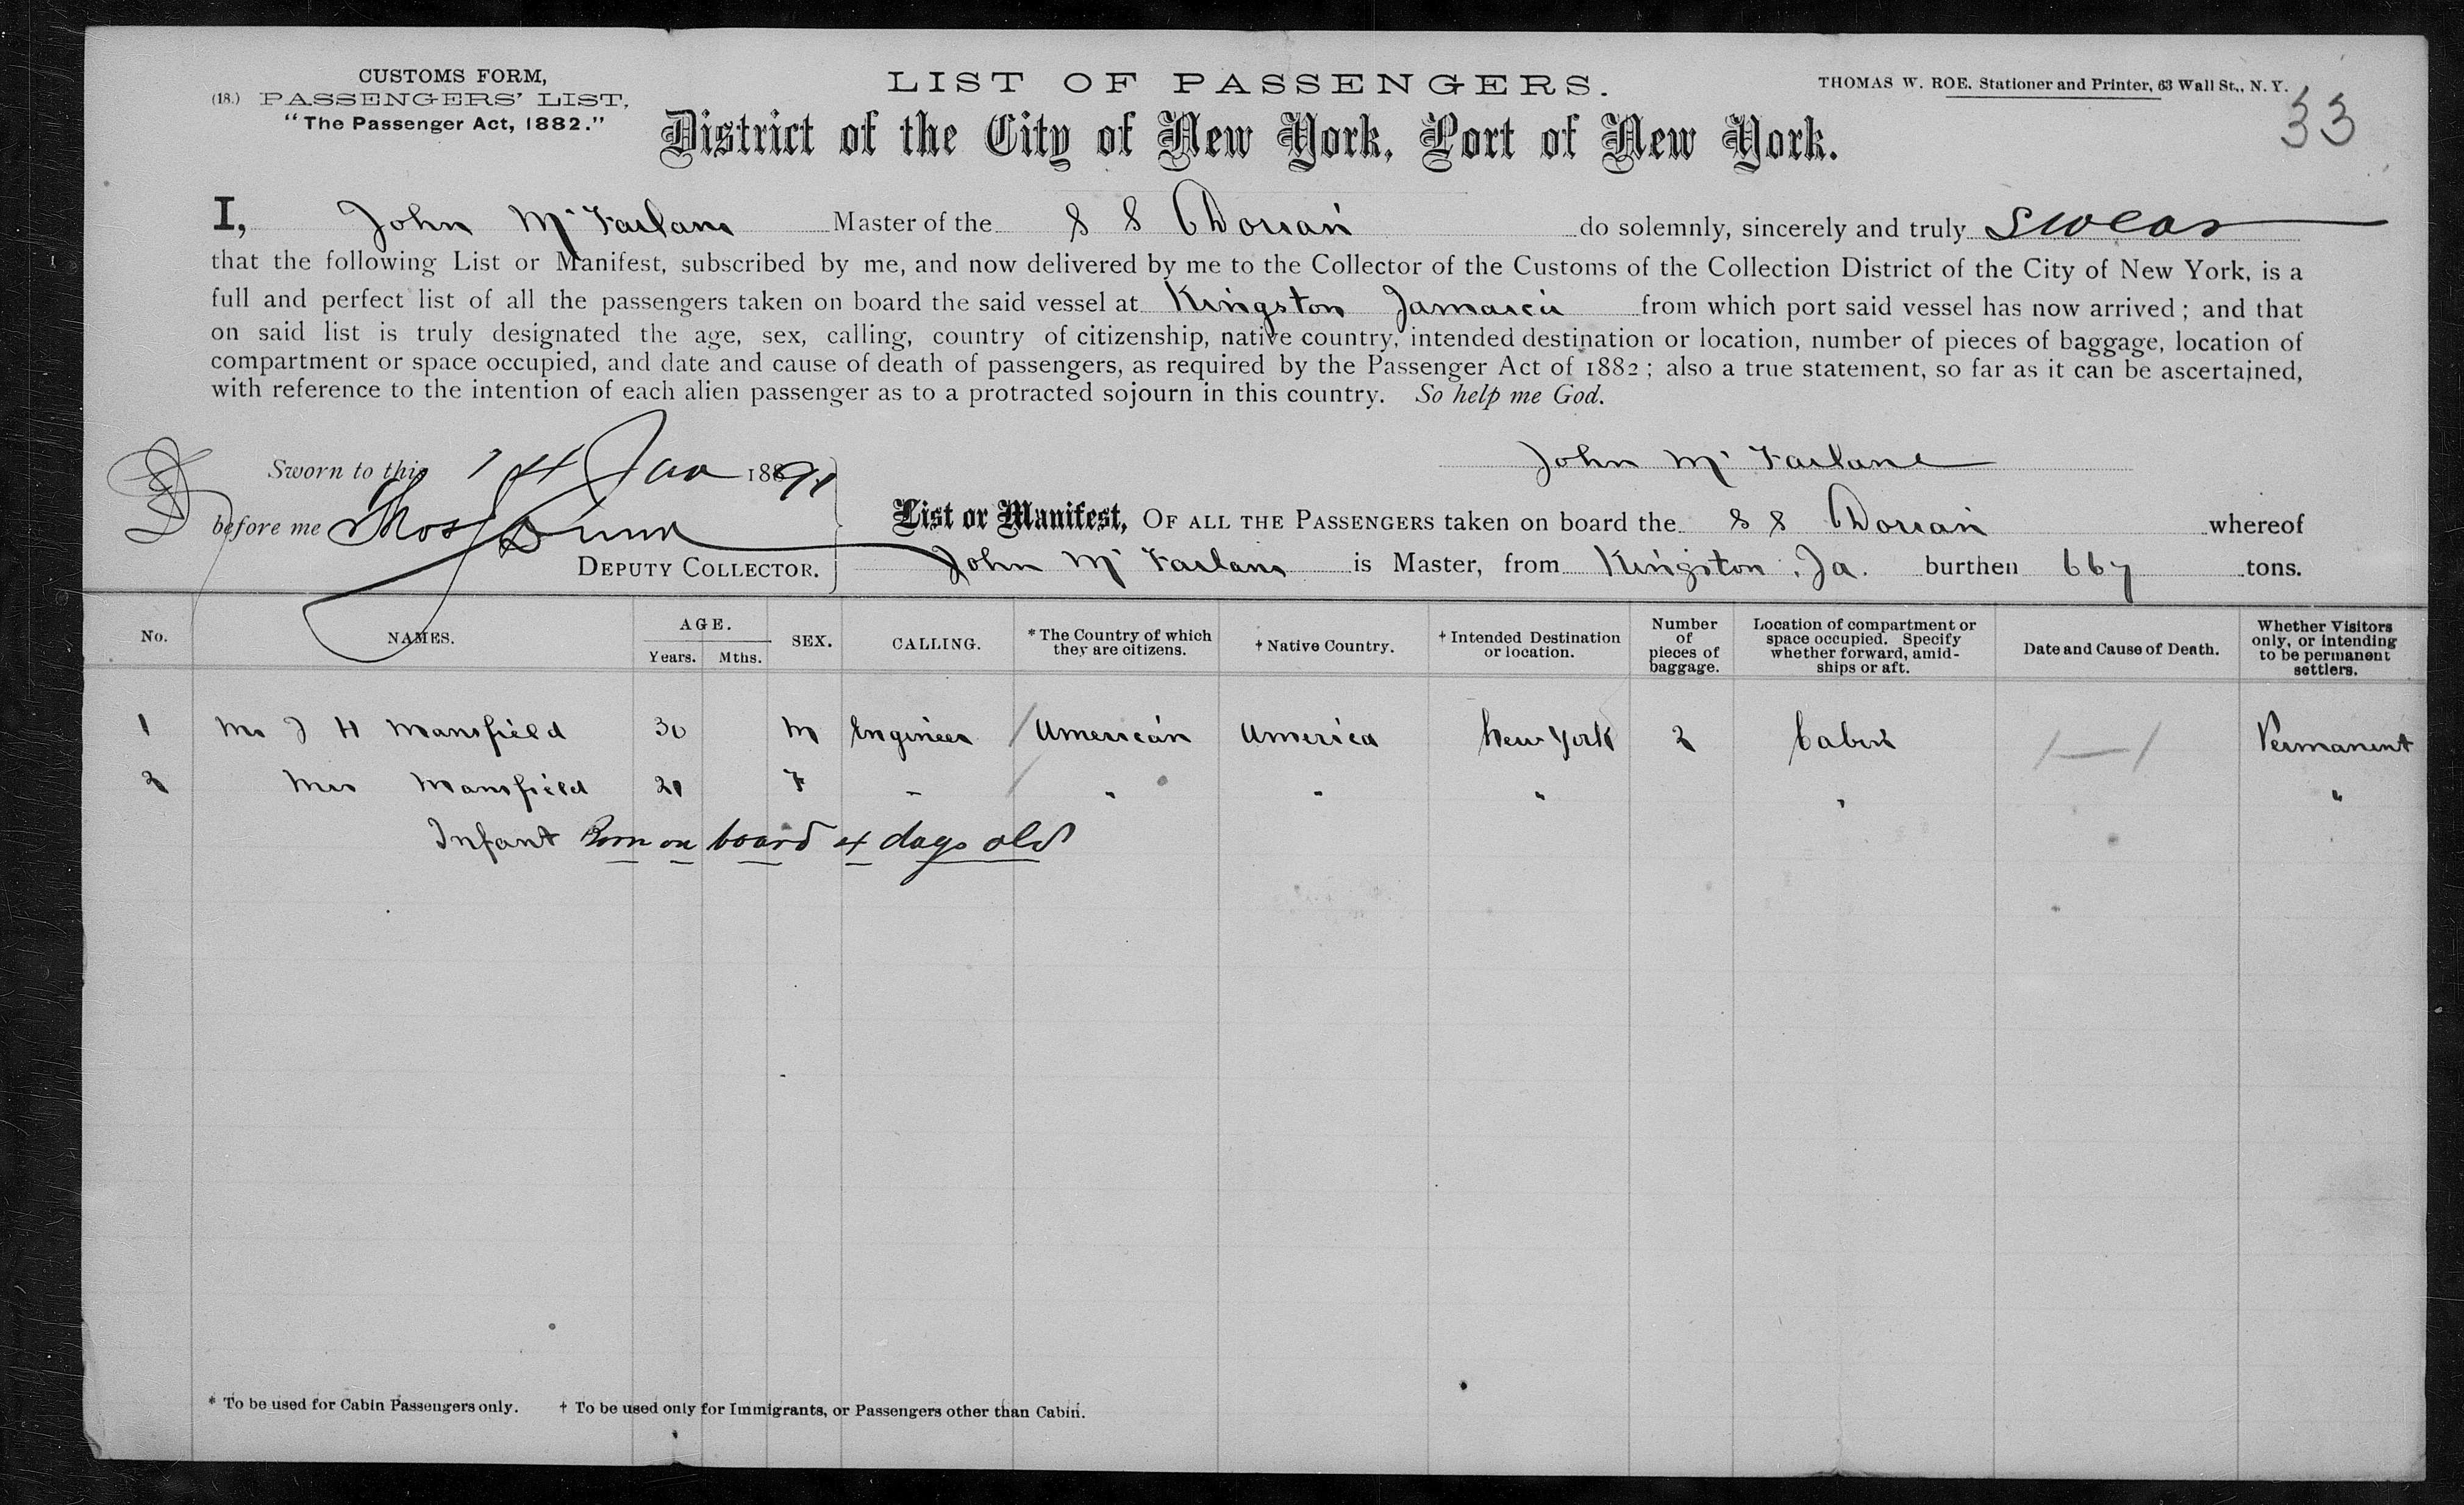 CUSTOMS FORM,
(18.) PASSENGERS' LIST,
"The Passenger Act, 1882."
LIST OF PASSENGERS.
THOMAS W. ROE. Stationer and Printer, 63 Wall St., N. Y.
33
District of the City of New York, Port of New York.
I, John McFarlane Master of the S S Dorian do solemnly, sincerely and truly swear
that the following List or Manifest, subscribed by me, and now delivered by me to the Collector of the Customs of the Collection District of the City of New York, is a
full and perfect list of all the passengers taken on board the said vessel at Kingston Jamaica from which port said vessel has now arrived; and that
on said list is truly designated the age, sex, calling, country of citizenship, native country, intended destination or location, number of pieces of baggage, location of
compartment or space occupied, and date and cause of death of passengers, as required by the Passenger Act of 1882; also a true statement, so far as it can be ascertained,
with reference to the intention of each alien passenger as to a protracted sojourn in this country. So help me God.
Sworn to this 14 Jan 1891
John McFarlane
before me Thos Dunn
DEPUTY COLLECTOR.
List or Manifest, OF ALL THE PASSENGERS taken on board the S S Dorian whereof
John McFarlane is Master, from Kingston, Ja. burthen 667 tons.
No. NAMES. AGE. Years. Mths. SEX. CALLING. * The Country of which they are citizens. † Native Country. † Intended Destination or location. Number of pieces of baggage. Location of compartment or space occupied. Specify whether forward, amidships or aft. Date and Cause of Death. Whether Visitors only, or intending to be permanent settlers.
1 Mr J H Mansfield 30 M Engineer / American America New York 2 Cabin /—/ Permanent
2 Mrs Mansfield 21 F - / " " " " "
Infant Born on board 4 days old
* To be used for Cabin Passengers only. † To be used only for Immigrants, or Passengers other than Cabin.